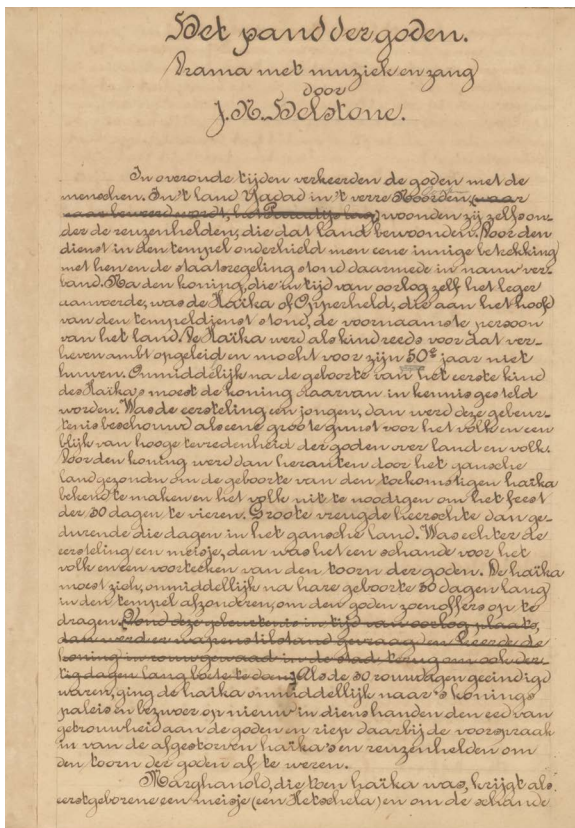 Het pand der goden.
Drama met muziek en zang
door
J. N. Helstone.
In overoude tijden verkeerden de goden met de
menschen. In 't land Yadad in 't verre Noorden, waar
naar beweerd wordt, het Paradijs lag, woonden zij zelfs on-
der de reuzenhelden, die dat land bewoonden. Door den
dienst in den tempel onderhield men eene innige betrekking
met hen en de staatsregeling stond daarmede in nauw ver-
band. Na den koning, die in tijd van oorlog zelf het leger
aanvoerde, was de Haïka of Opperheld, die aan het hoofd
van den tempeldienst stond, de voornaamste persoon
van het land. De Haïka werd als kind reeds voor dat ver-
heven ambt opgeleid en mocht voor zijn 50e jaar niet
huwen. Onmiddelijk na de geboorte van het eerste kind
des Haïka's moest de koning daarvan in kennis gesteld
worden. Was de eersteling een jongen, dan werd deze gebeur-
tenis beschouwd als eene groote gunst voor het volk en een
blijk van hooge tevredenheid der goden over land en volk.
Door den koning werden dan herauten door het gansche
land gezonden om de geboorte van den toekomstigen haïka
bekend te maken en het volk uit te noodigen om het feest
der 30 dagen te vieren. Groote vreugde heerschte dan ge-
durende die dagen in het gansche land. Was echter de
eersteling een meisje, dan was het een schande voor het
volk en een voorteeken van den toorn der goden. De haïka
moest zich, onmiddellijk na hare geboorte 30 dagen lang
in den tempel afzonderen, om den goden zoenoffers op te
dragen. Vond deze gebeurtenis in tijd van oorlog plaats,
dan werd er wapenstilstand gevraagd en keerde de
koning in rouwgewaad in de stad terug om ook der-
tig dagen lang boete te doen. Als de 30 rouwdagen geeindigd
waren, ging de haïka onmiddellijk naar 's konings
paleis en bezwoer op nieuw in diens handen den eed van
getrouwheid aan de goden en riep daarbij de voorspraak
in van de afgestorven haïka's en reuzenhelden om
den toorn der goden af te weren.
Marghanold, die toen haïka was, krijgt als
eerstgeborene een meisje (een Hetschela) en om de schande